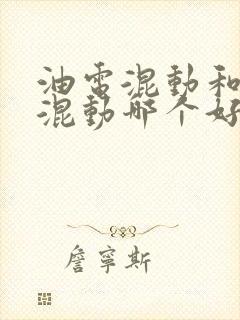 油電混動和
混動哪个好
詹寧斯